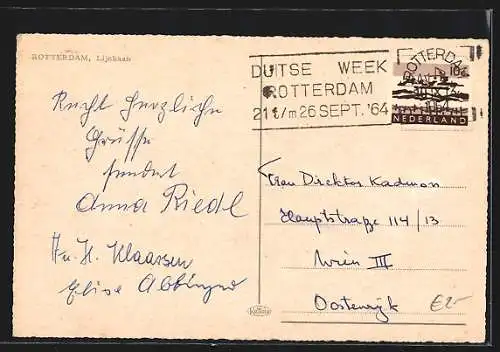 ROTTERDAM, Lijnbaan
DUITSE WEEK
ROTTERDAM
21 t/m 26 SEPT. '64
ROTTERDAM
NEDERLAND
Recht herzliche
Grüsse
sendet
Anna Riedl
H. Klaassen
Elise
Frau Direktor Kadmon
Hauptstraße 114/13
Wien III
Oostenrijk
€25-